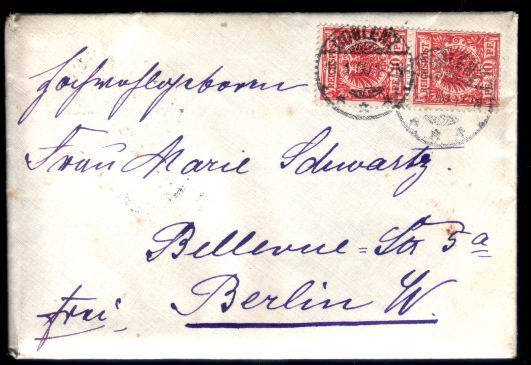 COBLENZ
10 PF. 10 PF.
REICHSPOST
Hochwohlgeboren
Frau Marie Schwartz.
Bellevue=Str 5a
Berlin W.
frei.